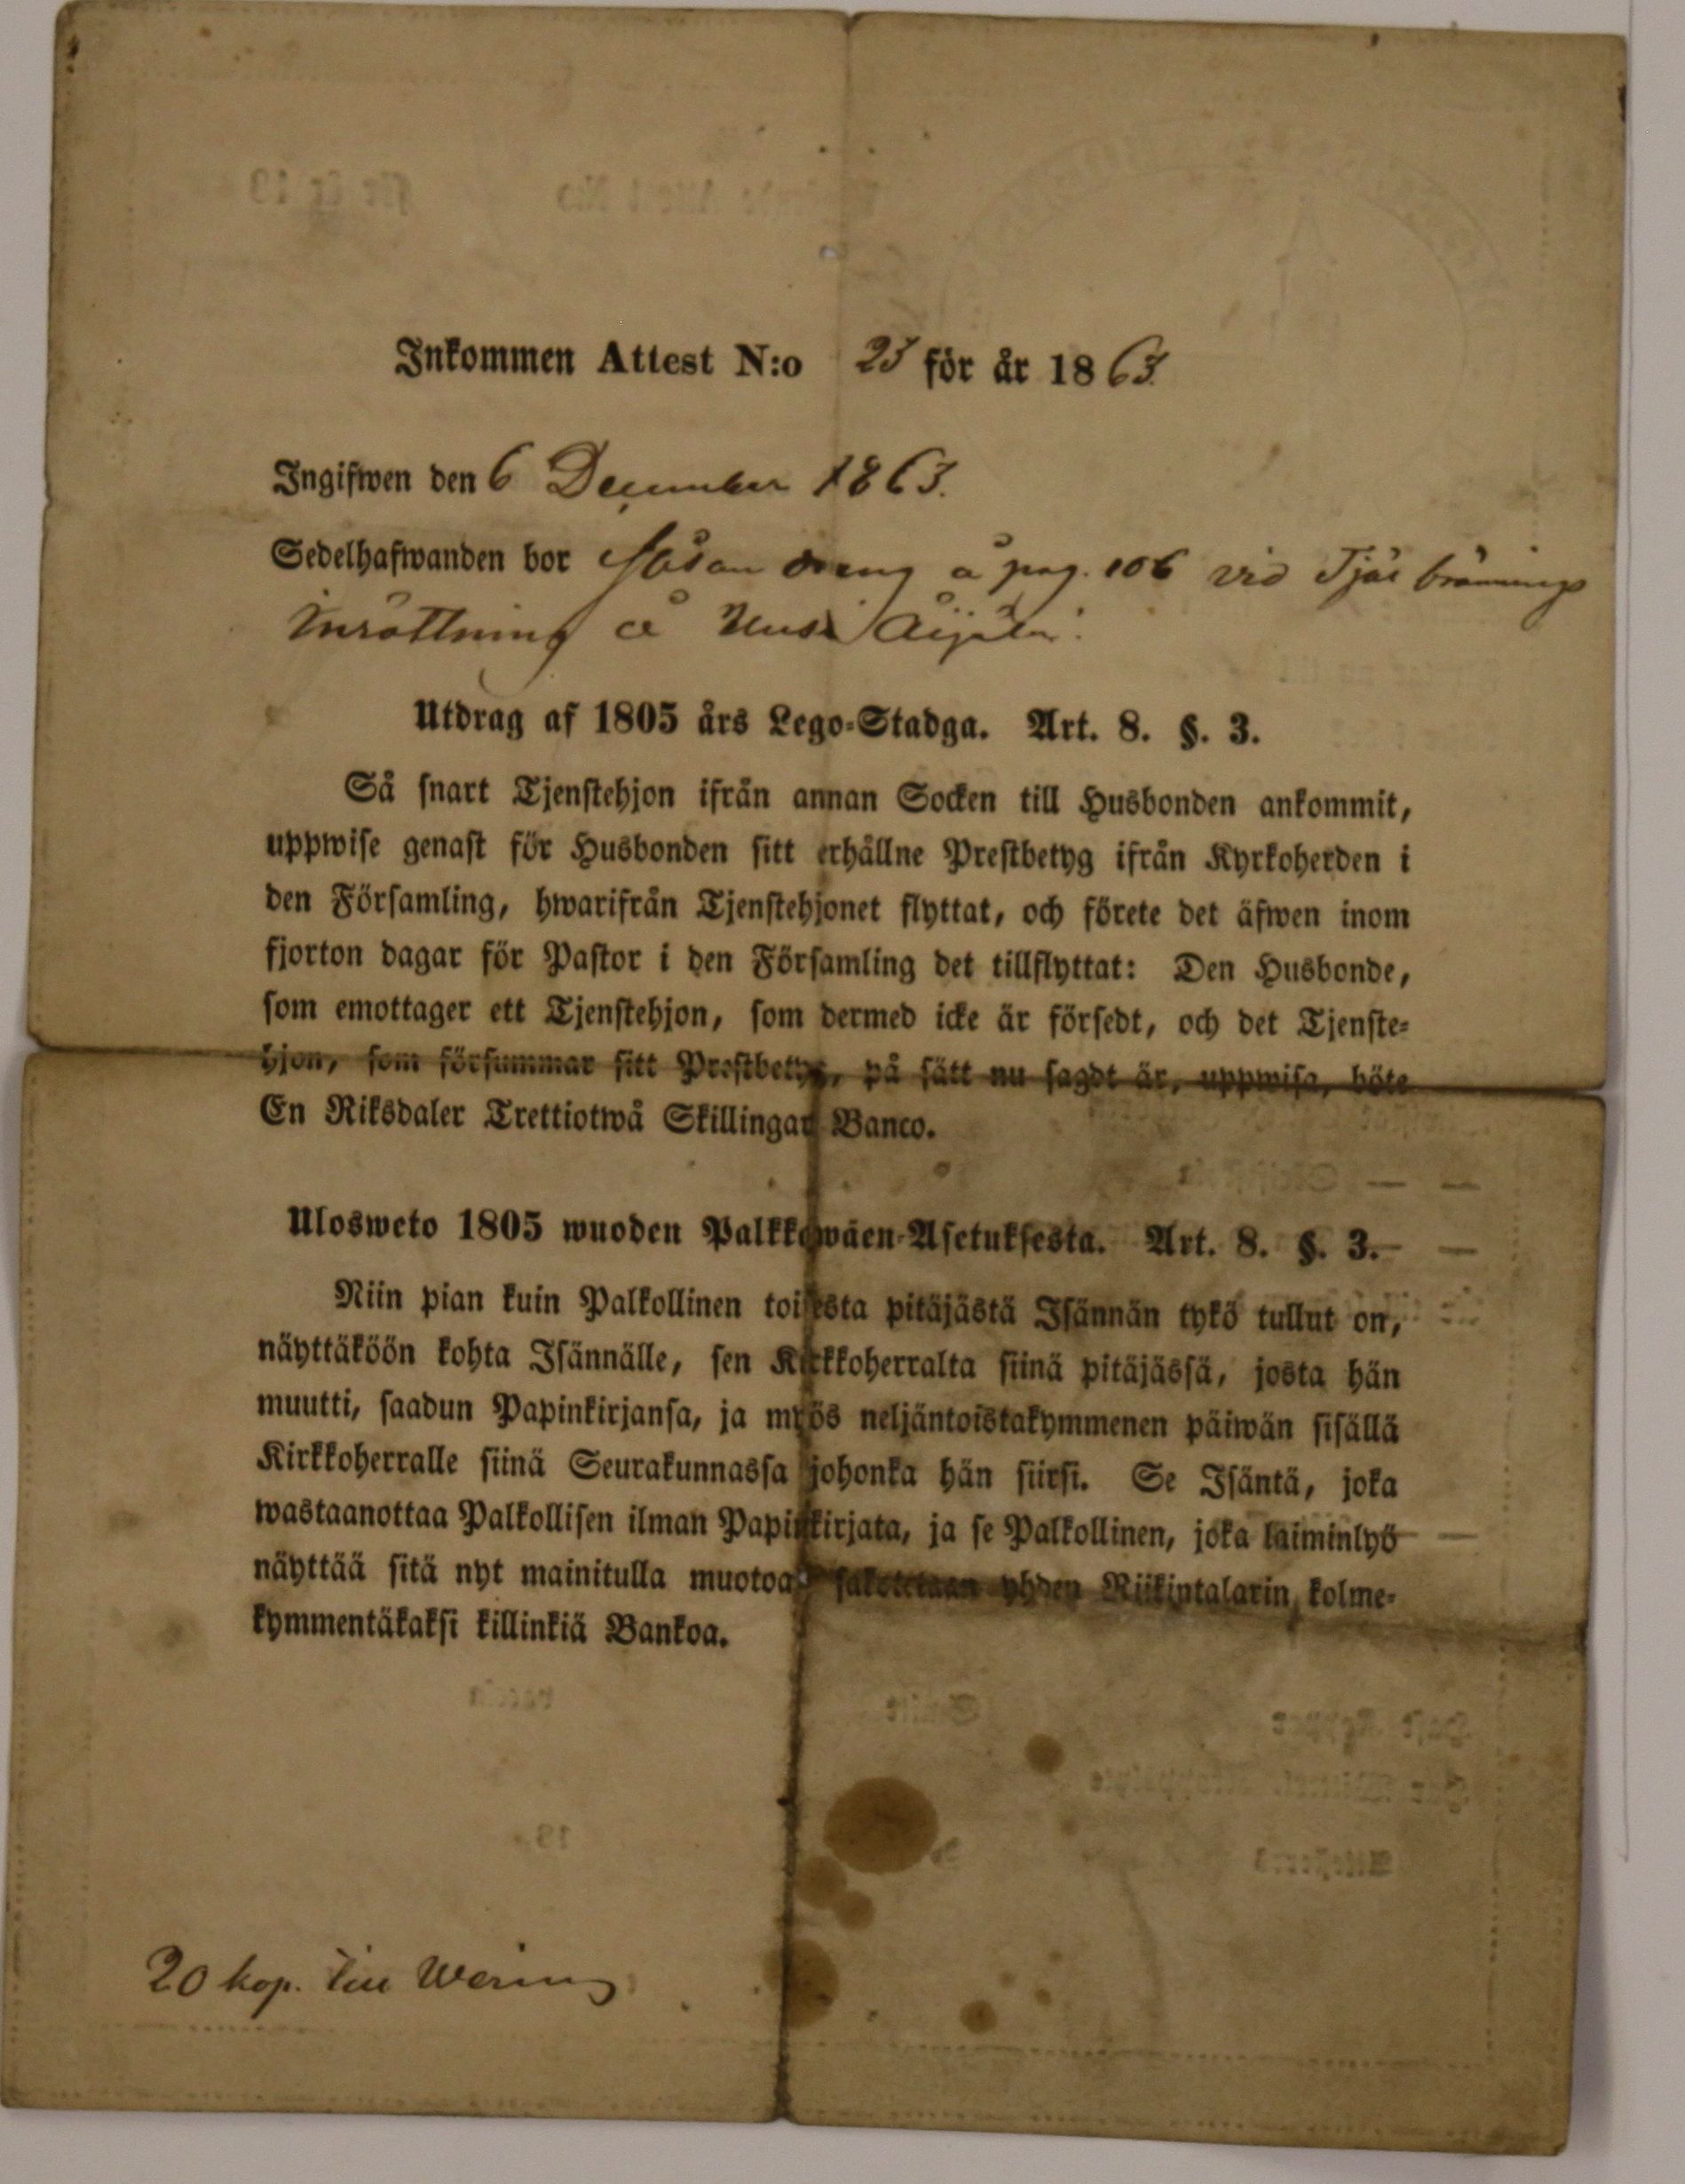 Inkommen Attest N:o 23 för år 1863.
Ingifwen den 6 December 1863.
Sedelhafwanden bor såsom dreng å pag. 106 vid Tjär brännings
inrättning å Uusi Äijälä.
Utdrag af 1805 års Lego-Stadga. Art. 8. §. 3.
Så snart Tjenstehjon ifrån annan Socken till Husbonden ankommit,
uppwise genast för Husbonden sitt erhållne Prestbetyg ifrån Kyrkoherden i
den Församling, hwarifrån Tjenstehjonet flyttat, och förete det äfwen inom
fjorton dagar för Pastor i den Församling det tillflyttat: Den Husbonde,
som emottager ett Tjenstehjon, som dermed icke är försedt, och det Tjenste-
hjon, som försummar sitt Prestbetyg, på sätt nu sagdt är, uppwisa, böte
En Riksdaler Trettiotwå Skillingar Banco.
Ulosweto 1805 wuoden Palkkawäen-Asetuksesta. Art. 8. §. 3.
Niin pian kuin Palkollinen toisesta pitäjästä Isännän tykö tullut on,
näyttäköön kohta Isännälle, sen Kirkkoherralta siinä pitäjässä, josta hän
muutti, saadun Papinkirjansa, ja myös neljäntoistakymmenen päiwän sisällä
Kirkkoherralle siinä Seurakunnassa johonka hän siirsi. Se Isäntä, joka
wastaanottaa Palkollisen ilman Papinkirjata, ja se Palkollinen, joka laiminlyö
näyttää sitä nyt mainitulla muotoa, sakotetaan yhden Riikintalarin, kolme-
kymmentäkaksi killinkiä Bankoa.
20 kop. till